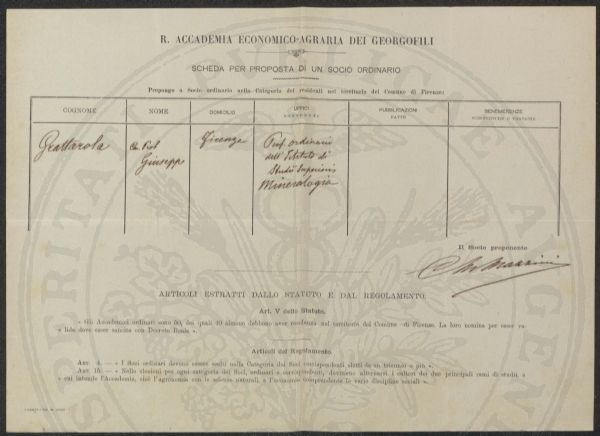 R. ACCADEMIA ECONOMICO-AGRARIA DEI GEORGOFILI
SCHEDA PER PROPOSTA DI UN SOCIO ORDINARIO
Propongo a Socio ordinario nella Categoria dei residenti nel territorio del Comune di Firenze:
COGNOME NOME DOMICILIO UFFICI PUBBLICAZIONI FATTE BENEMERENZE
Grattarola Giuseppe Firenze Prof. ordinario
dell'Istituto di
Studii Superiori
Mineralogia
Il Socio proponente
ARTICOLI ESTRATTI DALLO STATUTO E DAL REGOLAMENTO.
Art. V dello Statuto.
« Gli Accademici ordinari sono 50, dei quali 40 almeno debbono aver residenza nel territorio del Comune di Firenze. La loro nomina per esser va-
« lida deve esser sancita con Decreto Reale ».
Articoli del Regolamento.
« I Soci ordinari devono essere scelti nella Categoria dei Soci corrispondenti eletti da un triennio o più ».
« Nelle elezioni per ogni categoria dei Soci, ordinari o corrispondenti, dovranno alternarsi i cultori dei due principali rami di studii, a
« cui intende l'Accademia, cioè l'agronomia con le scienze naturali, e l'economia comprendente le varie discipline sociali ».